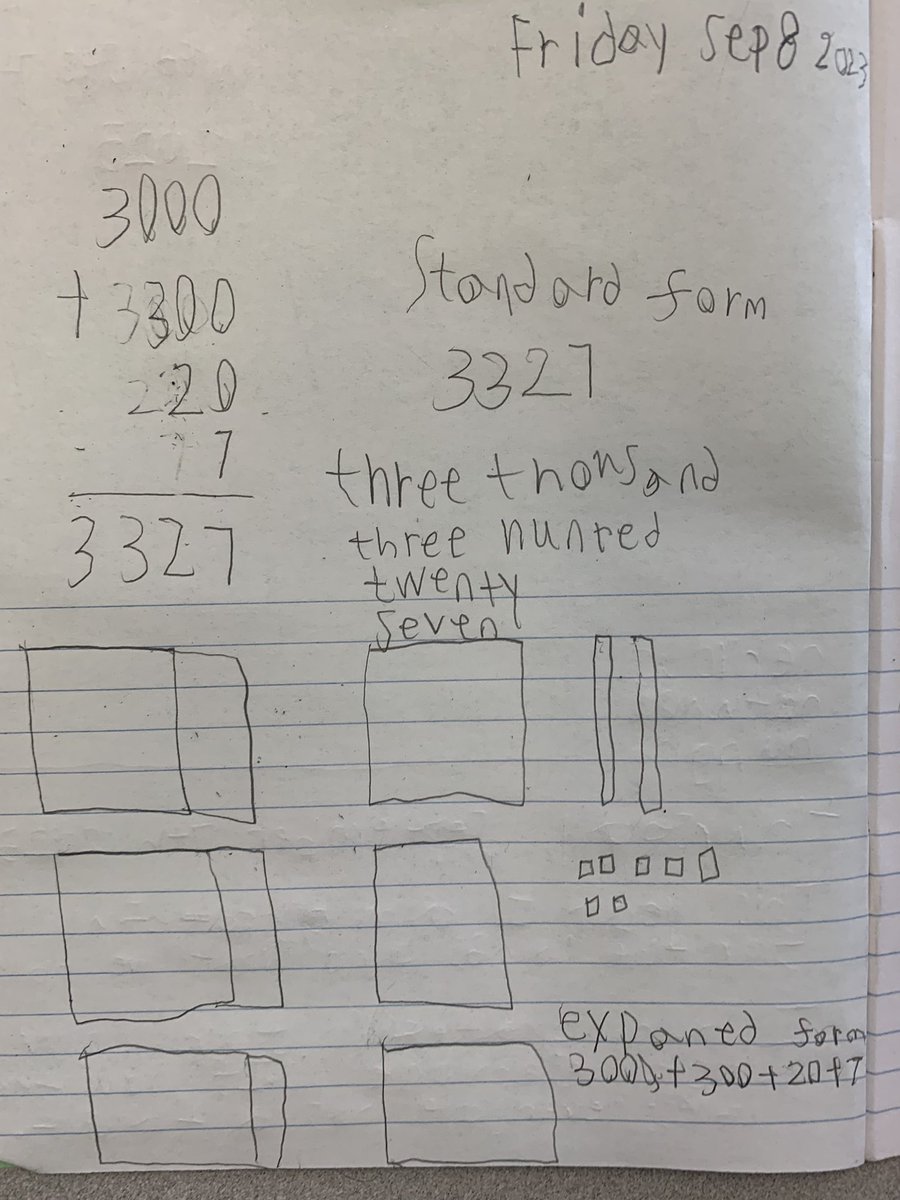 Friday Sep 8 2023
3000
+ 3300
220
7
3327
Standard form
3327
three thonsand
three nunred
twenty
seven
expaned form
3000+300+20+7